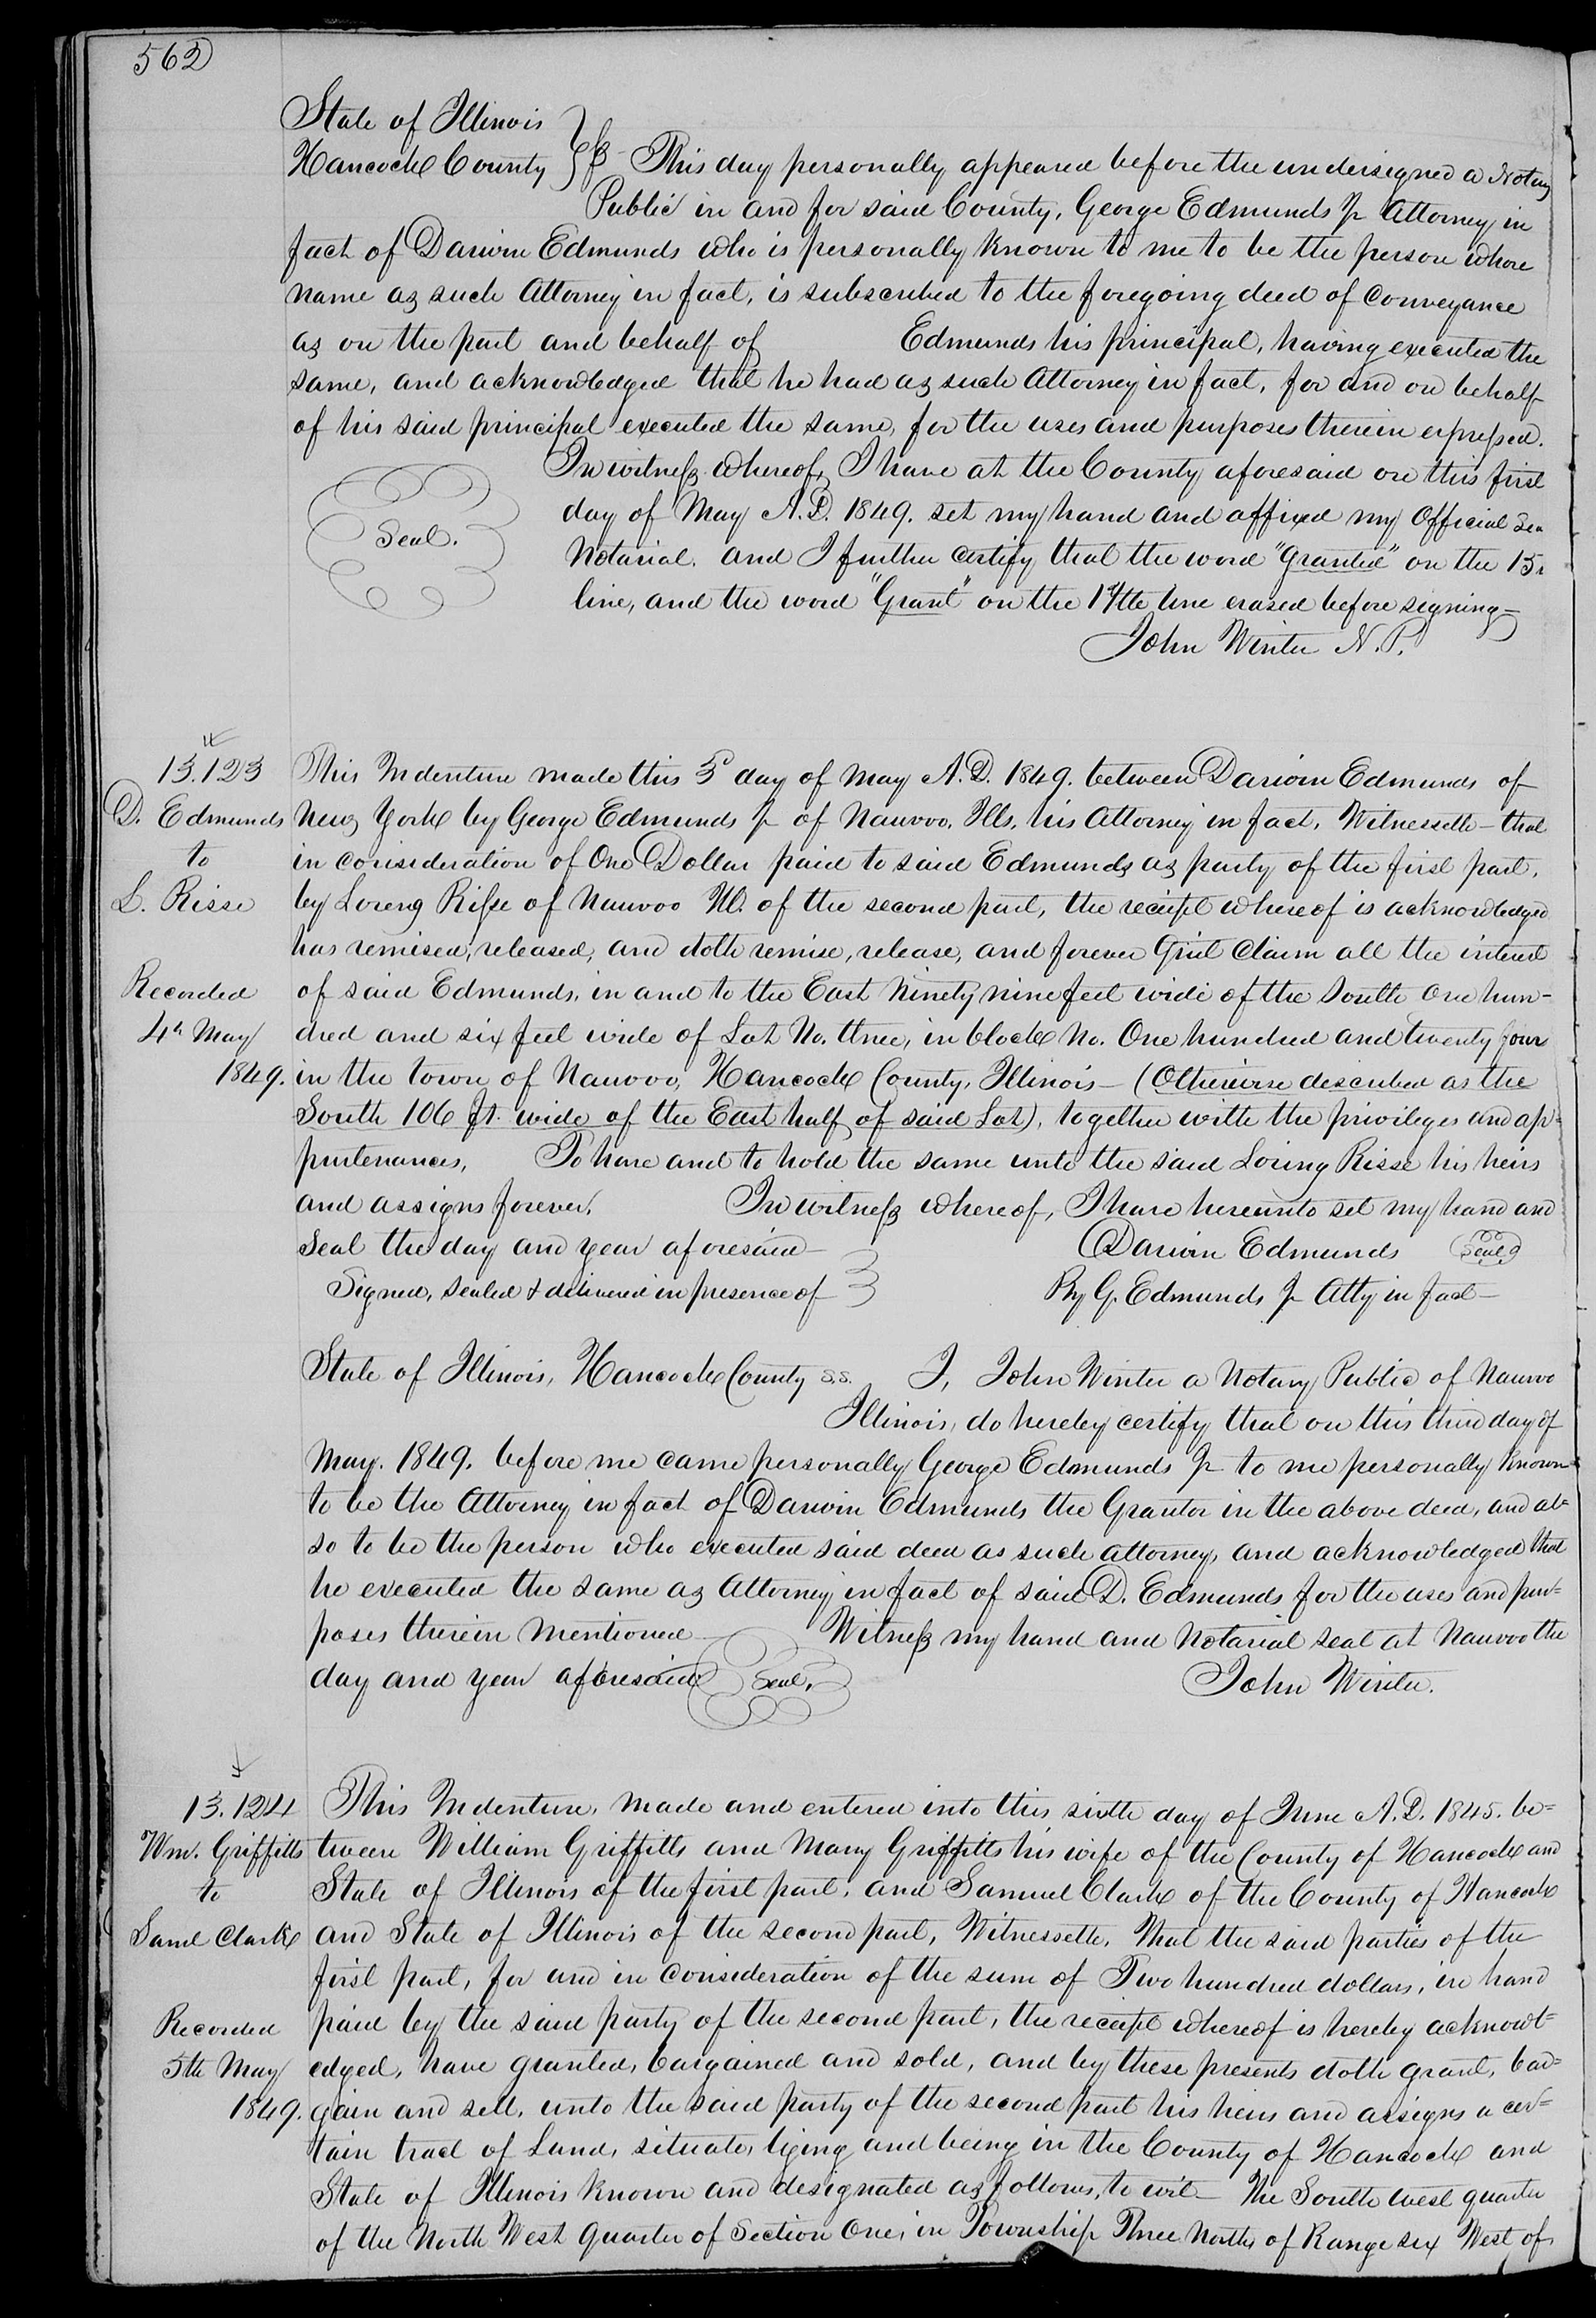 562
State of Illinois
Hancock County } ss This day personally appeared before the undersigned a Notary
Public in and for said County, George Edmunds Jr Attorney in
fact of Darwin Edmunds who is personally known to me to be the person whose
name as such Attorney in fact, is subscribed to the foregoing deed of Conveyance
as on the part and behalf of Edmunds his principal, having executed the
same, and acknowledged that he had as such Attorney in fact, for and on behalf
of his said principal executed the same, for the uses and purposes therein expressed.
In witness whereof, I have at the County aforesaid on this first
day of May A.D. 1849. set my hand and affixed my Official Sea
Seal.
Notarial. and I further certify that the word "granted" on the 15
line, and the word "Grant" on the 17th line erased before signing—
John Winter N.P.
13.123
D. Edmunds
to
L. Risse
Recorded
4th May
1849.
This Indenture made this 3d day of May A.D. 1849. between Darwin Edmunds of
New York by George Edmunds Jr of Nauvoo, Ills. his Attorney in fact, Witnesseth— that
in consideration of One Dollar paid to said Edmunds as party of the first part,
by Loreng Risse of Nauvoo Ill. of the second part, the receipt whereof is acknowledged
has remised, released, and doth remise, release, and forever Quit Claim all the interest
of said Edmunds, in and to the East Ninety nine feet wide of the South One hun=
dred and six feet wide of Lot No. three, in block No. One hundred and twenty four
in the town of Nauvoo, Hancock County, Illinois— (Otherwise described as the
South 106 ft. wide of the East half of said Lot), together with the privileges and ap=
purtenances, To have and to hold the same unto the said Loring Risse his heirs
and assigns forever. In witness whereof, I have hereunto set my hand and
Seal the day and year aforesaid—
Darwin Edmunds Seal
Signed, sealed & delivered in presence of }
By G. Edmunds Jr Atty in fact—
State of Illinois, Hancock County s.s. I, John Winter a Notary Public of Nauvoo
Illinois, do hereby certify that on this third day of
May. 1849. before me came personally George Edmunds Jr to me personally known
to be the Attorney in fact of Darwin Edmunds the Grantor in the above deed, and al=
so to be the person who executed said deed as such attorney, and acknowledged that
he executed the same as Attorney in fact of said D. Edmunds for the uses and pur=
poses therein mentioned— Witness my hand and Notarial seal at Nauvoo the
day and year aforesaid Seal. John Winter.
13.124
Wm. Griffitts
to
Saml Clark
Recorded
5th May
1849.
This Indenture, made and entered into this sixth day of June A.D. 1845. be=
tween William Griffitts and Mary Griffitts his wife of the County of Hancock and
State of Illinois of the first part, and Samuel Clark of the County of Hancock
and State of Illinois of the second part, Witnesseth, That the said parties of the
first part, for and in consideration of the sum of Two hundred dollars, in hand
paid by the said party of the second part, the receipt whereof is hereby acknowl=
edged, have granted, bargained and sold, and by these presents doth grant, bar=
gain and sell, unto the said party of the second part his heirs and assigns a cer=
tain tract of Land, situate, lying and being in the County of Hancock and
State of Illinois known and designated as follows, to wit— The South West quarter
of the North West quarter of Section One, in Township Three North, of Range six West of